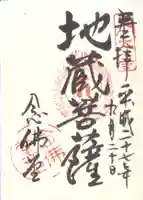 奉拝
平成二十七年
九月二十日
地蔵菩薩
念佛堂